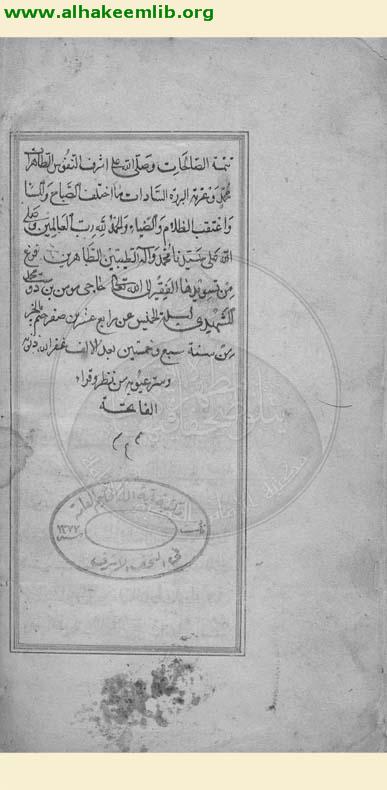 www.alhakeemlib.org
تتمة الصالحات وصلى الله على اشرف النفوس الطاهرة
محمد وعترته البررة السادات ما اختلف الصباح والمسا
واعتقب الظلام والضياء والحمد لله رب العالمين وصلى
الله على سيدنا محمد وآله الطيبين الطاهرين فرغ
من تسويدها الفقير الى الله حاجي مومن بن دوست محمد
ليلة الخميس عن رابع عشر من صفر ختم بالخير
من سنة سبع وخمسين بعد الالف غفر الله ذنوبه
وستر عيوبه من نظر وقراء
الفاتحة
م م م
العامة
تأسست
١٣٧٧
في النجف الاشرف